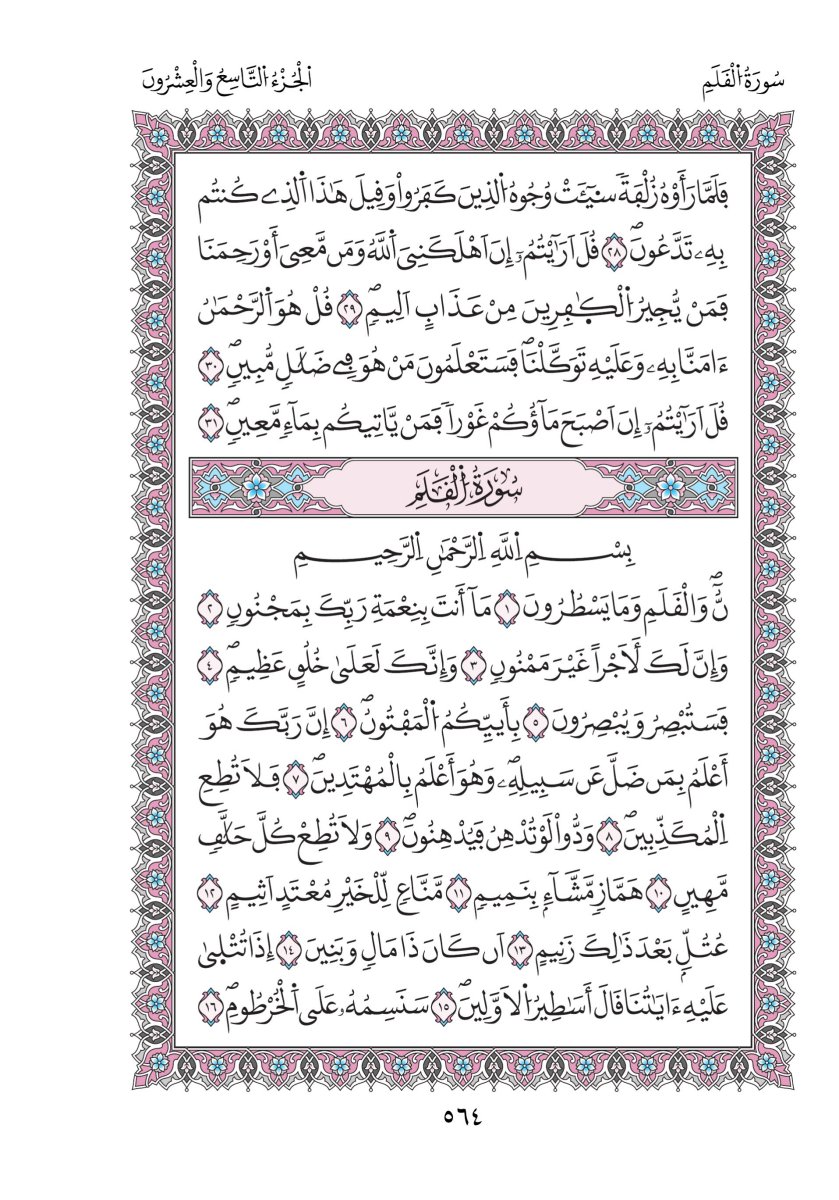 سُورَةُ اُ۬لْقَلَمِ
اُ۬لْجُزْءُ اُ۬لتَّاسِعُ وَالْعِشْرُونَ
فَلَمَّا رَأَوْهُ زُلْفَةٗ سِيٓـَٔتْ وُجُوهُ اُ۬لذِينَ كَفَرُواْ وَقِيلَ هَٰذَا اَ۬لذِے كُنتُم
بِهِۦ تَدَّعُونَۖ ٢٨ قُلَ اَرَٰٓيْتُمُۥٓ إِنَ اَهْلَكَنِيَ اَ۬للَّهُ وَمَن مَّعِيَ أَوْ رَحِمَنَا
فَمَنْ يُّجِيرُ اُ۬لْكٰ۪فِرِينَ مِنْ عَذَابٍ اَلِيمٖۖ ٢٩ قُلْ هُوَ اَ۬لرَّحْمَٰنُ
ءَامَنَّا بِهِۦ وَعَلَيْهِ تَوَكَّلْنَاۖ فَسَتَعْلَمُونَ مَنْ هُوَ فِے ضَلَٰلٖ مُّبِينٖۖ ٣٠
قُلَ اَرَٰٓيْتُمُۥٓ إِنَ اَصْبَحَ مَآؤُكُمْ غَوْراٗ فَمَنْ يَّاتِيكُم بِمَآءٖ مَّعِينِۖ ٣١
سُورَةُ اُ۬لْقَلَمِ
بِسْمِ اِ۬للَّهِ اِ۬لرَّحْمَٰنِ اِ۬لرَّحِيمِ
نَّۖ وَالْقَلَمِ وَمَا يَسْطُرُونَ ١ مَآ أَنتَ بِنِعْمَةِ رَبِّكَ بِمَجْنُونٖ ٢
وَإِنَّ لَكَ لَأَجْراً غَيْرَ مَمْنُونٖ ٣ وَإِنَّكَ لَعَلَىٰ خُلُقٍ عَظِيمٖۖ ٤
فَسَتُبْصِرُ وَيُبْصِرُونَ ٥ بِأَييِّكُمُ اُ۬لْمَفْتُونُۖ ٦ إِنَّ رَبَّكَ هُوَ
أَعْلَمُ بِمَن ضَلَّ عَن سَبِيلِهِۦۖ وَهُوَ أَعْلَمُ بِالْمُهْتَدِينَۖ ٧ فَلَا تُطِعِ
اِ۬لْمُكَذِّبِينَۖ ٨ وَدُّواْ لَوْ تُدْهِنُ فَيُدْهِنُونَۖ ٩ وَلَا تُطِعْ كُلَّ حَلَّافٖ
مَّهِينٍ ١٠ هَمَّازٖ مَّشَّآءِۢ بِنَمِيمٖ ١١ مَّنَّاعٖ لِّلْخَيْرِ مُعْتَدٍ اَثِيمٍ ١٢
عُتُلِّۢ بَعْدَ ذَٰلِكَ زَنِيمٍ ١٣ اَن كَانَ ذَا مَالٖ وَبَنِينَ ١٤ إِذَا تُتْلٜيٰ
عَلَيْهِ ءَايَٰتُنَا قَالَ أَسَٰطِيرُ اُ۬لَاوَّلِينَۖ ١٥ سَنَسِمُهُۥ عَلَى اَ۬لْخُرْطُومِۖ ١٦
٥٦٤